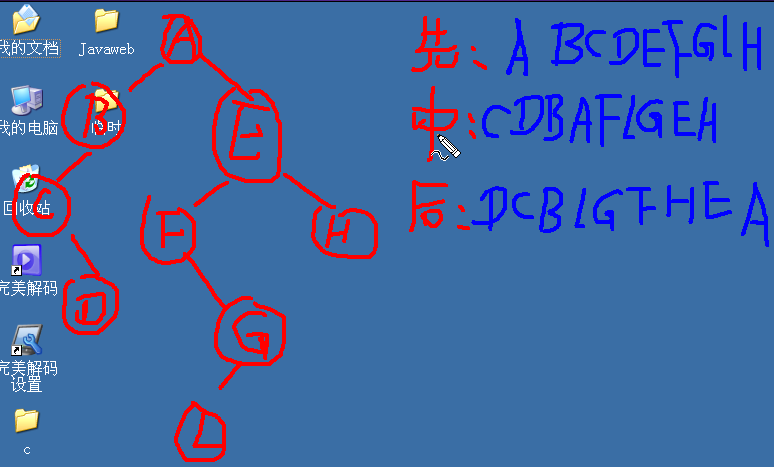 我的文档
Javaweb
我的电脑
时
回收站
完美解码
完美解码
设置
c
A
B
E
C
F
H
D
G
L
先: A BCDEFGLH
中: CDBAFLGEH
后: DCBLGFHEA